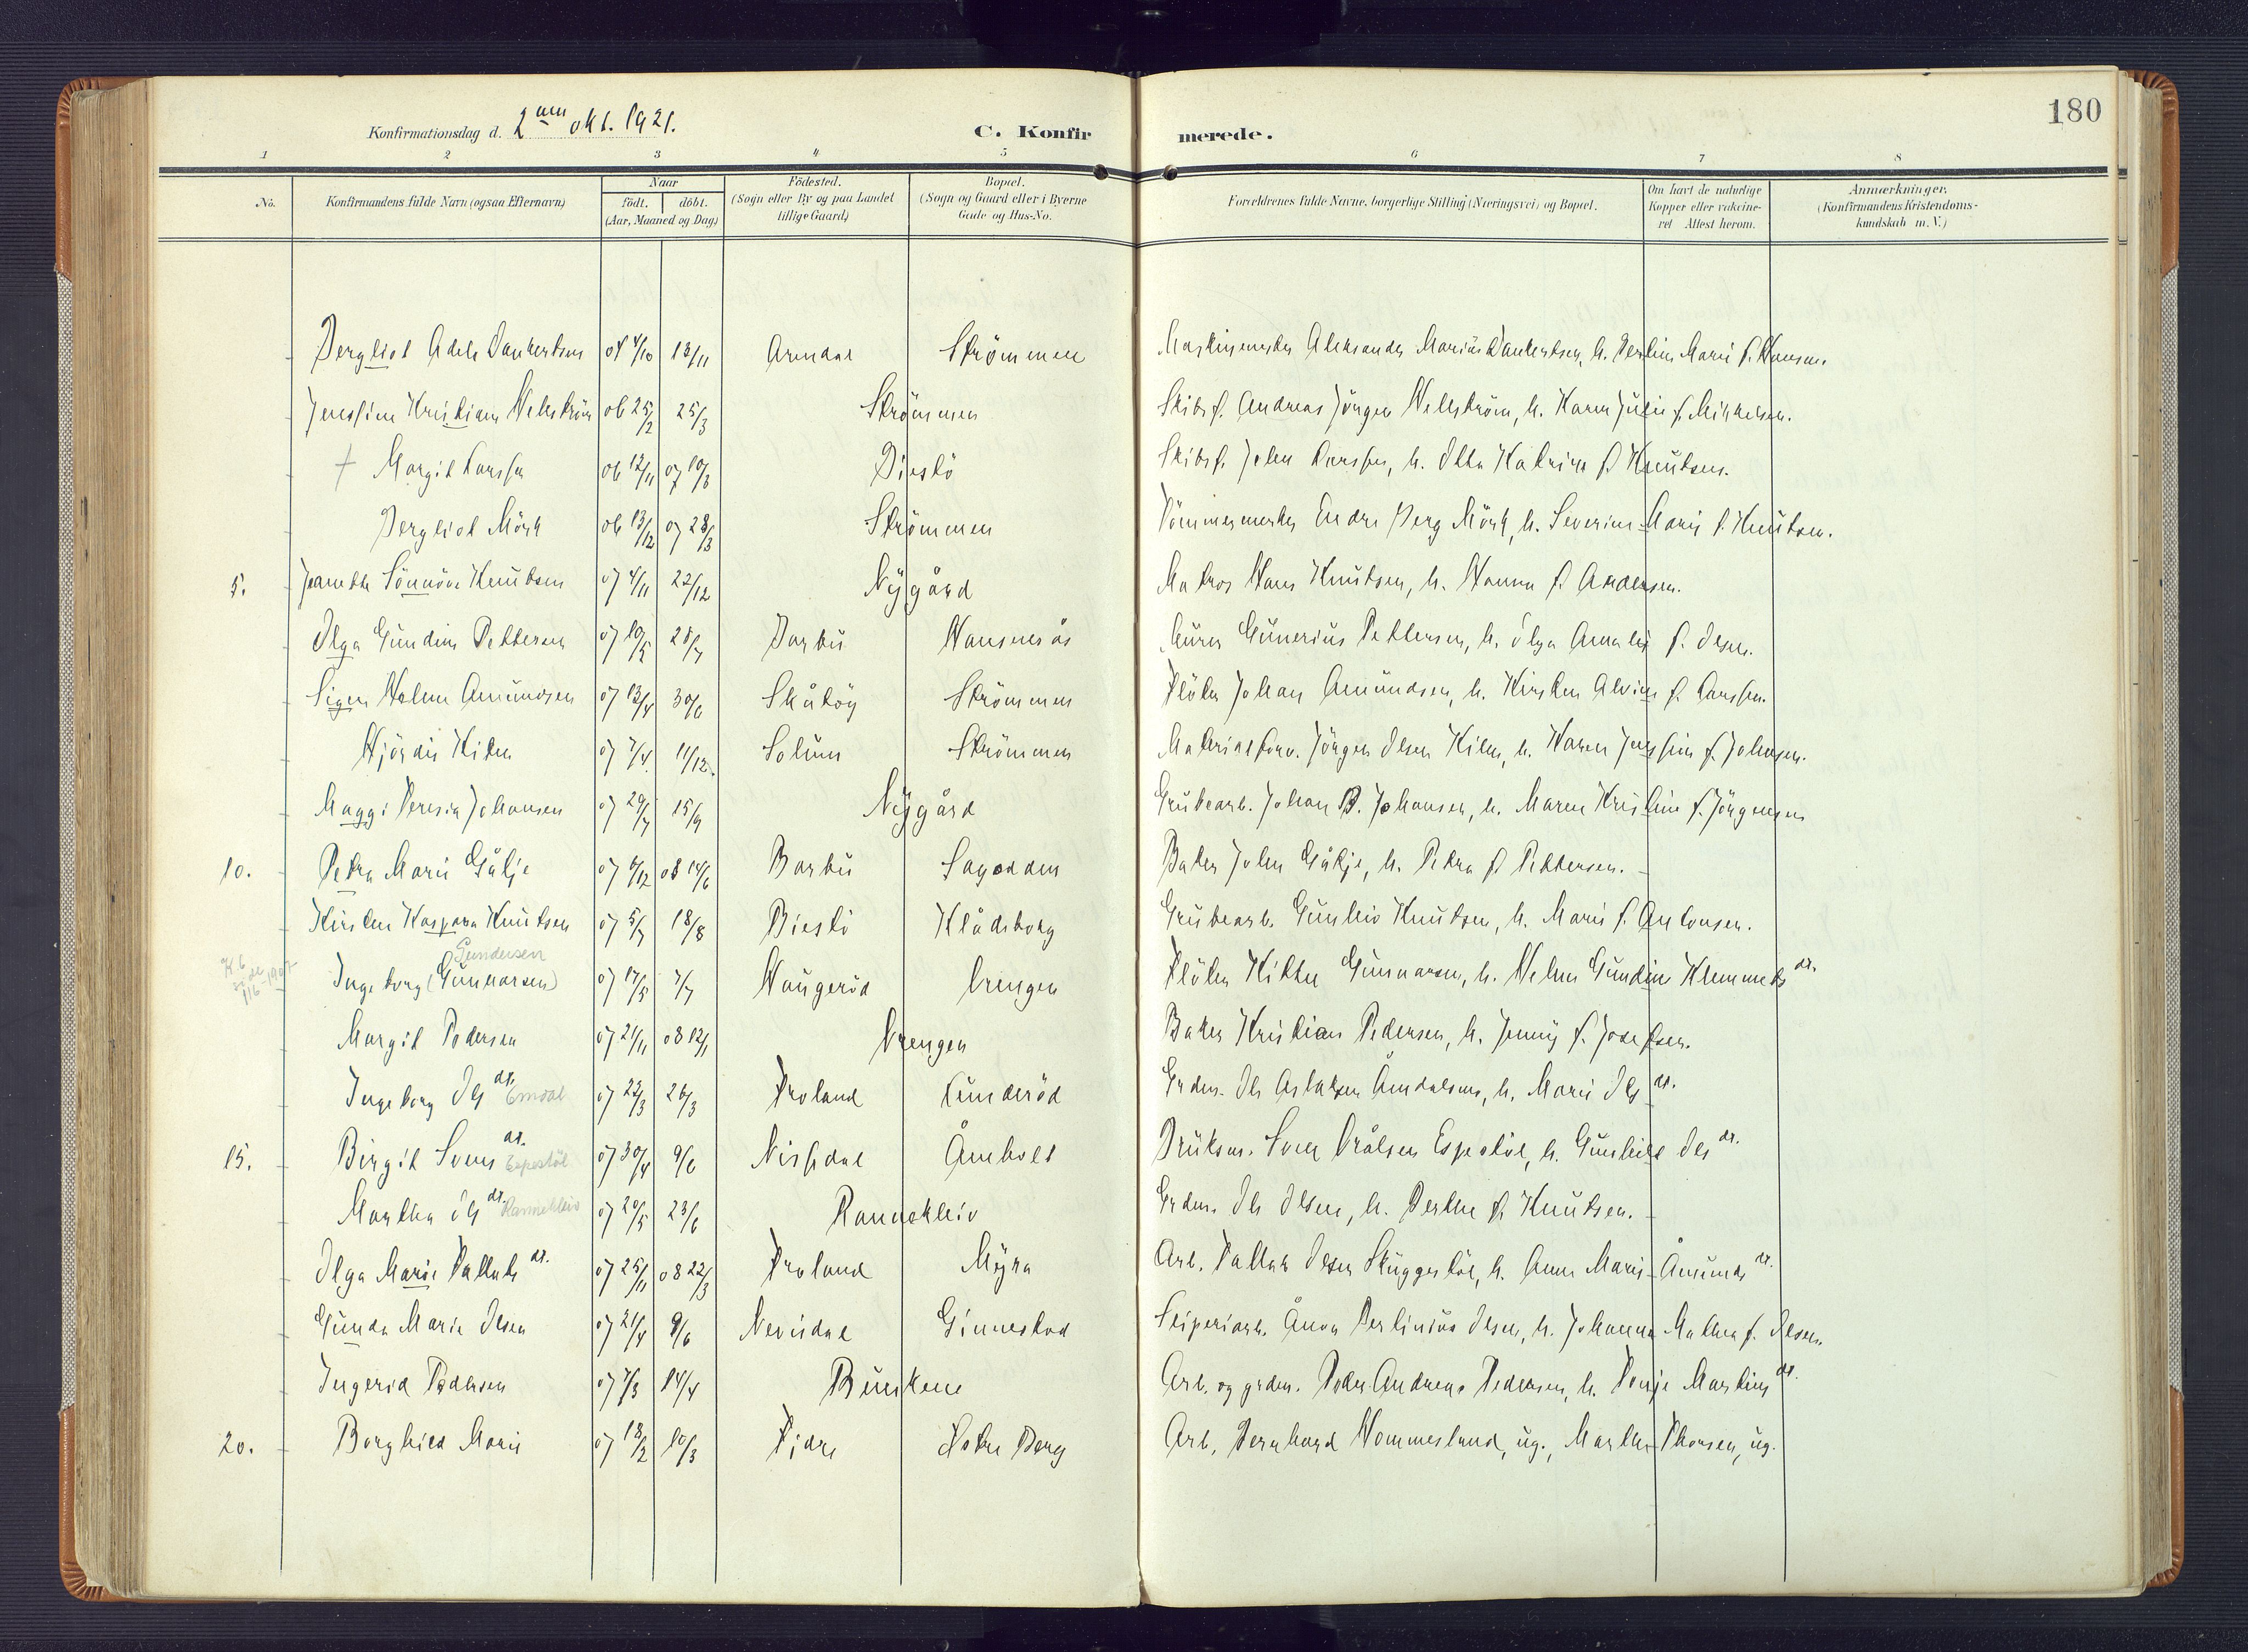 180
Konfirmationsdag d. 2den okt. 1921.
C. Konfirmerede.
1 2 3 4 5 6 7 8
No. Konfirmandens fulde Navn (ogsaa Efternavn) Naar födt. döbt. (Aar, Maaned og Dag) Födested. (Sogn eller By og paa Landet tillige Gaard) Bopæl. (Sogn og Gaard eller i Byerne Gade og Hus-No. Forældrenes fulde Navne, borgerlige Stilling (Næringsvei) og Bopæl. Om havt de naturlige Kopper eller vakcineret Attest herom. Anmærkninger. (Konfirmandens Kristendomskundskab m. V.)
Bergliot Adele Dankertsen 4/10 13/11 Arendal Strömmen Maskinmester Aleksander Marius Dankertsen, h. Marie f. Hansen.
Jenssine Kristiane Wellström 06 25/2 25/3 Strömmen Skibsf. Andreas Jörgen Wellström, h. Karen Julie f. Mikkelsen.
† Margit Larssen 06 12/11 07 10/3 Biestö Skibsf. John Larssen, h. Katrine f. Knutsen.
Bergliot Mörk 06 13/12 07 28/3 Strömmen Tömmermester Endre Berg Mörk, h. Severine Marie f. Knutsen.
5. Jeanette Sönnöve Knutsen 07 4/11 22/12 Nygård Matros Hans Knutsen, h. Hanna f. Andersen.
Olga Gundine Pettersen 07 10/5 28/7 Barbu Hansnesås Murer Gunerius Pettersen, h. Olga Amalie f. Olsen.
Signe Helene Amundsen 07 13/4 30/6 Skåtöy Strömmen Flöter Johan Amundsen, h. Kirsten Alvine f. Larssen.
Hjördis Kilen 07 7/4 11/12. Solum Strömmen Materialforv. Jörgen Olsen Kilen, h. Karen Jenssine f. Johnsen.
Maggi Teresia Johansen 07 29/7 15/9 Nygård Grubearb. Johan B. Johansen, h. Maren Kristine f. Jörgensen
10. Petra Marie Gåkje 07 6/12 08 14/6 Barbu Sagodden Baker John Gåkje, h. Petra f. Pettersen.
Kirsten Kaspara Knutsen 07 5/7 18/8 Biestö Klådeborg Grubearb. Gunleiv Knutsen, h. Marie f. Antonsen.
Gundersen
Ingeborg (Gunnarsen) 07 17/5 7/7 Haugeröd Vrengen Flöter Kittel Gunnarsen, h. Helene Gundine Klemmetsdr.
Margit Pedersen 07 21/11 08 12/1 Vrengen Baker Kristian Pedersen, h. Jenny f. Josefsen.
Ingeborg Olsdr. Emdal 07 22/3 26/3 Froland Lunderöd Grdm. Ole Aslaksen Åmdalsmo, h. Marie Olsdr.
15. Birgit Svensdr. Espestöl 07 30/4 9/6 Nissedal Åmholt Bruksm. Sven Drålsen Espestöl, h. Gunhild Olsdr.
Martha Olsdr. Rannekleiv 07 20/5 23/6 Rannekleiv Grdm. Ole Olsen, h. Berthe f. Knutsen.
Olga Marie Tallaksdr. 07 25/11 08 22/3 Froland Myra Arb. Tallak Olsen Skuggestöl, h. Anne Marie Åmundsdr.
Gunda Marie Olsen 07 21/4 9/6 Nevisdal Ginnestad Sliperiarb. Anon Bertinius Olsen, h. Johanne Mathea f. Olsen.
Ingerid Pedersen 07 7/3 14/4 Buskene Arb. og grdm. Peder Andreas Pedersen, h. Tonje Martinsdr.
20. Borghild Marie 07 18/2 10/3 Fidre Östre Berg Arb. Bernhard Hommesland, ug., Marthe Thorsen, ug.